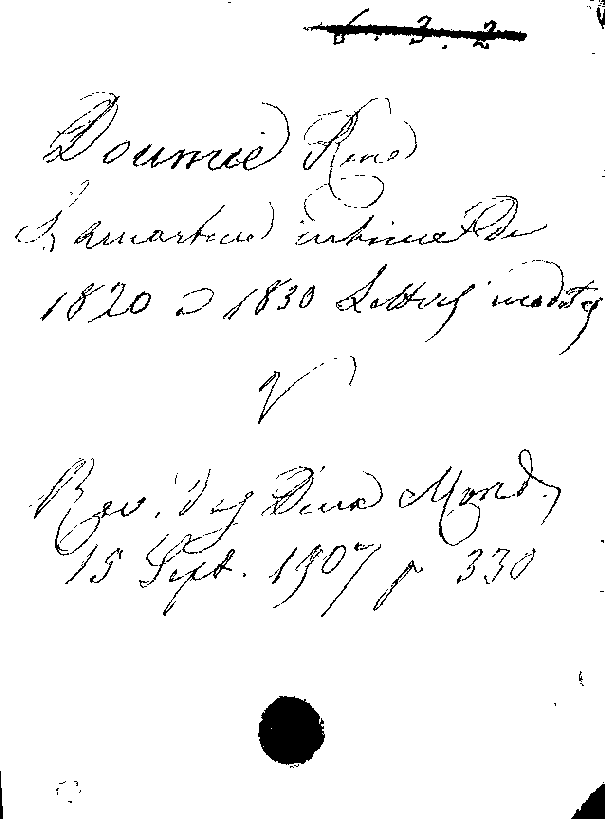 6.3.2
Doumic René
Lamartine intime de
1820 à 1830 Lettres inédites
V
Rev. des Deux Mond.
15 Sept. 1907 p 330